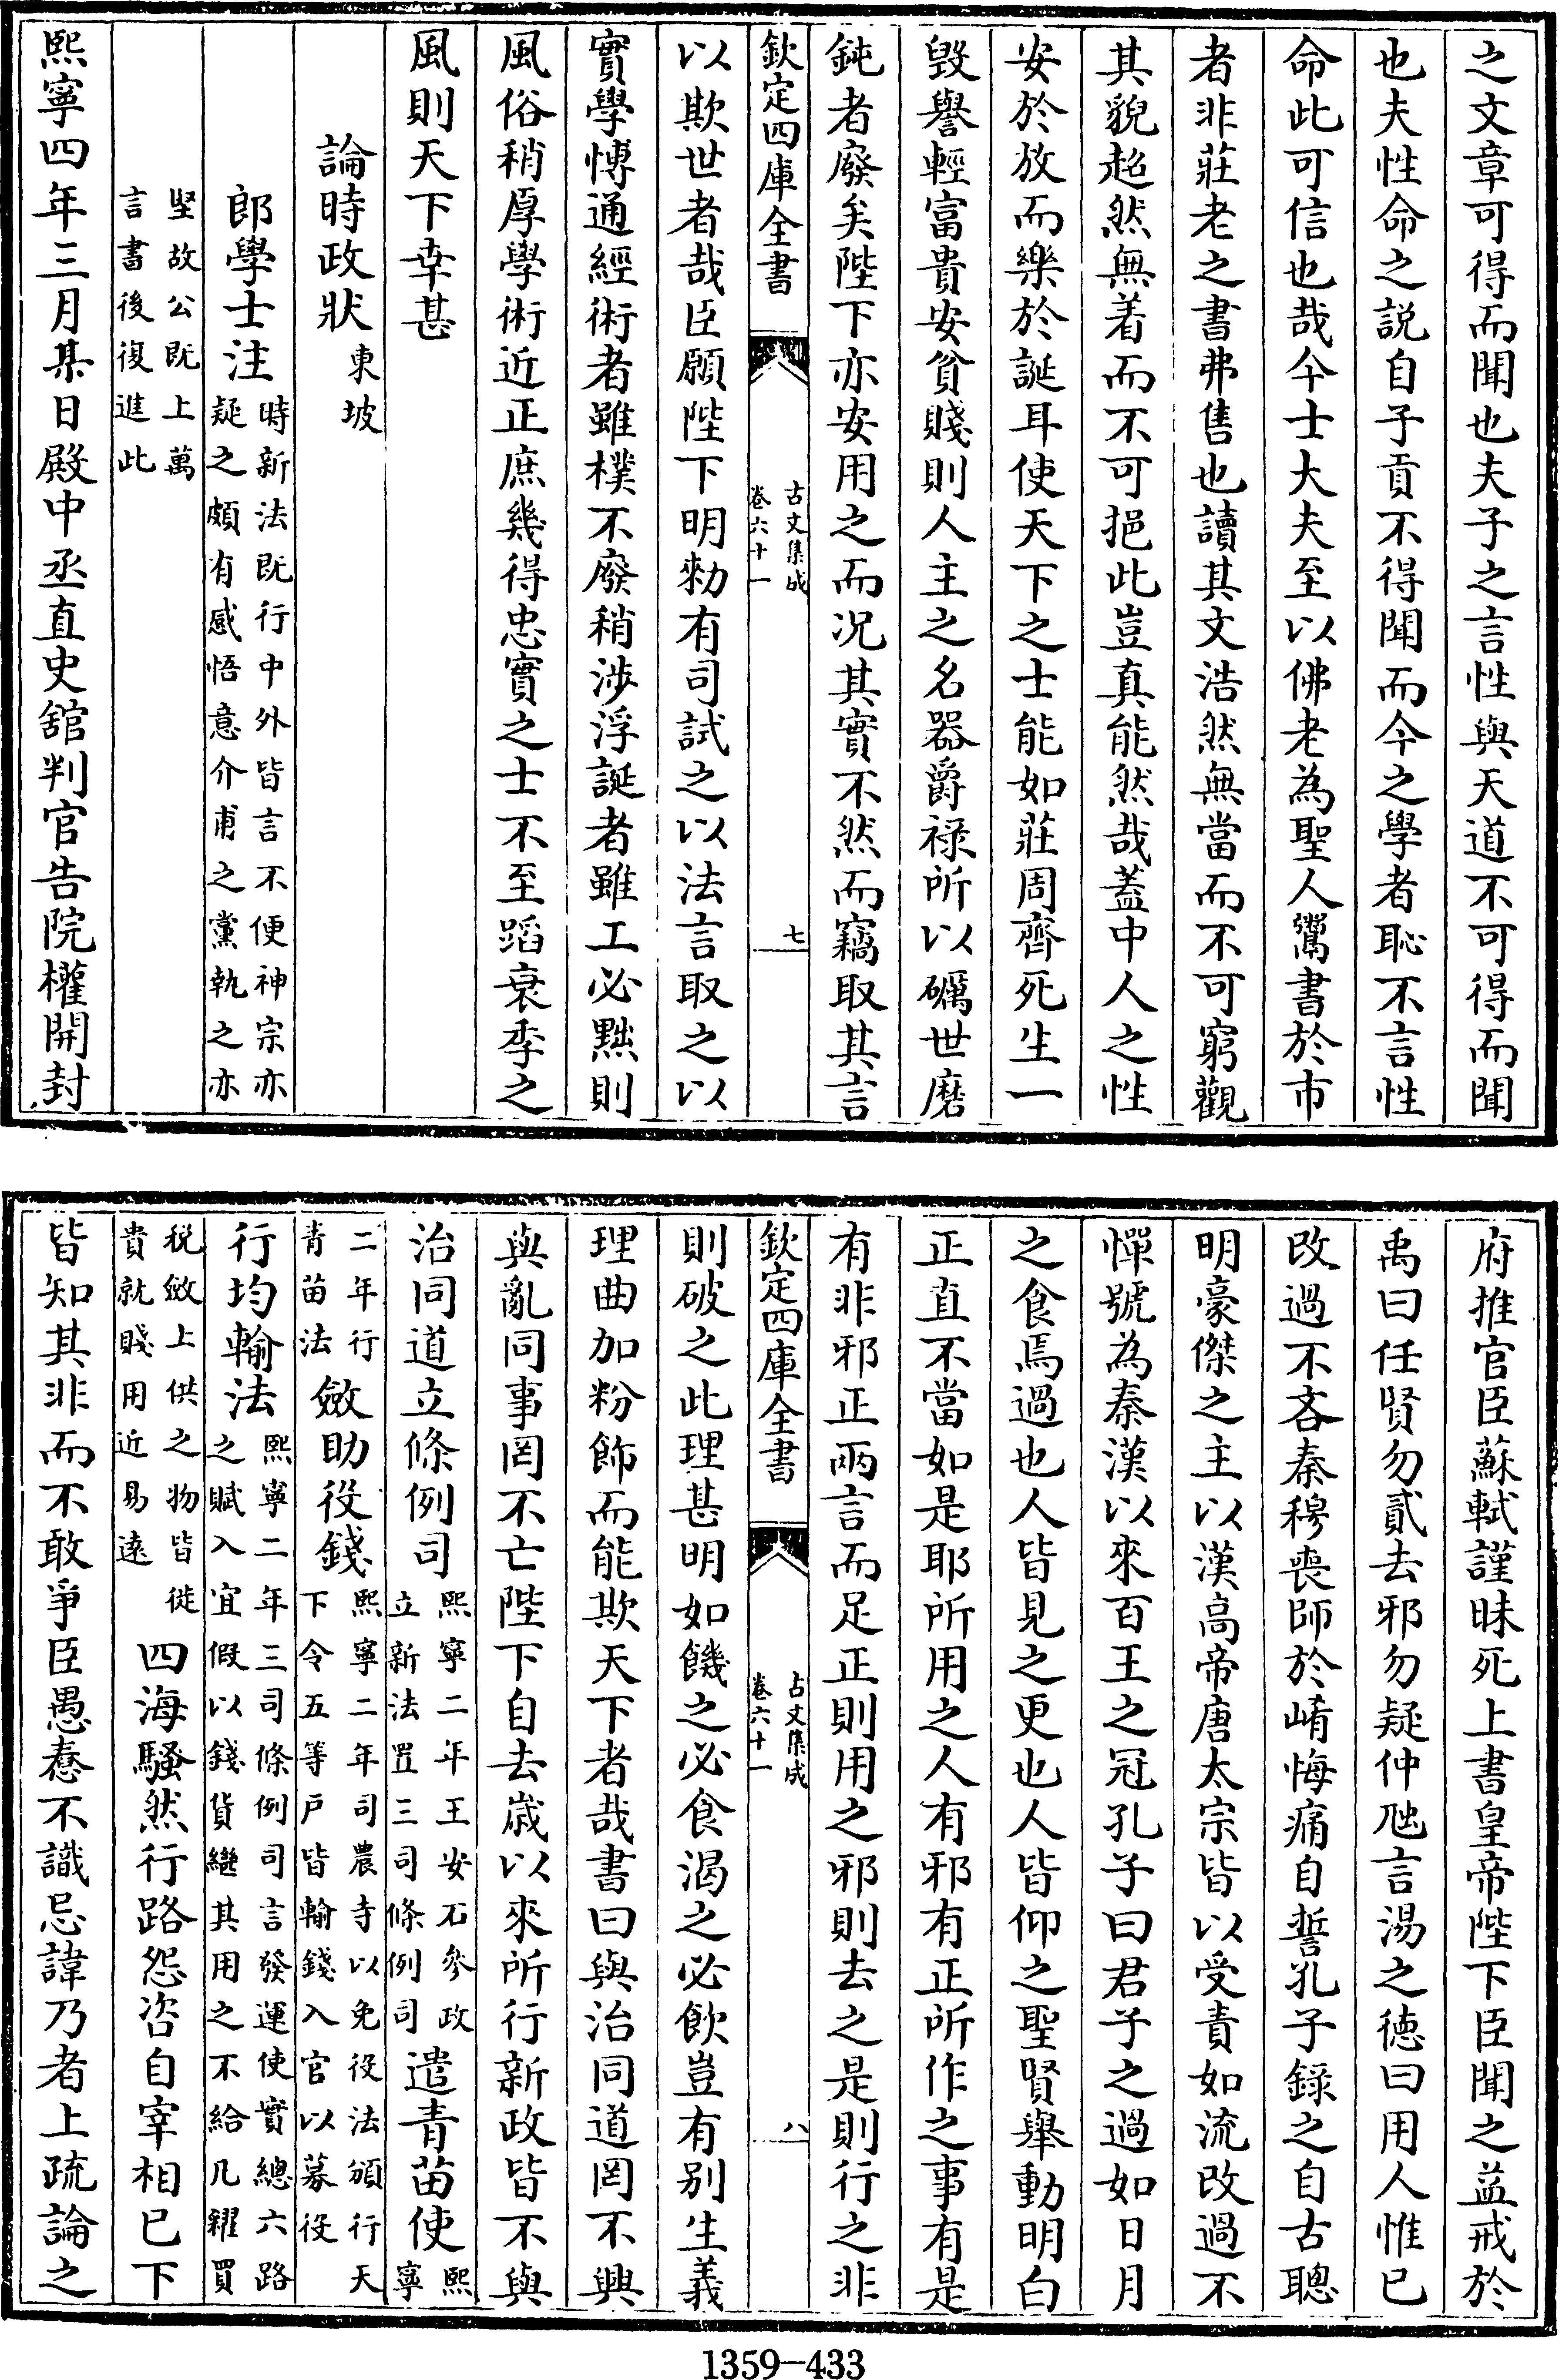 之文章可得而聞也夫子之言性與天道不可得而聞
也夫性命之説自子貢不得聞而今之學者恥不言性
命此可信也哉今士大夫至以佛老為聖人鬻書於市
者非莊老之書弗售也讀其文浩然無當而不可窮觀
其貌超然無着而不可挹此豈真能然哉葢中人之性
安於放而樂於誕耳使天下之士能如莊周齊死生一
毁譽輕富貴安貧賤則人主之名器爵禄所以礪世磨
鈍者廢矣陛下亦安用之而况其實不然而竊取其言
欽定四庫全書
古文集成
卷六十一
七
以欺世者哉臣願陛下明勑有司試之以法言取之以
實學愽通經術者雖樸不廢稍涉浮誕者雖工必黜則
風俗稍厚學術近正庶幾得忠實之士不至蹈衰季之
風則天下幸甚
論時政狀 東坡
郎學士注 時新法既行中外皆言不便神宗亦
疑之頗有感悟意介甫之黨執之亦
堅故公既上萬
言書後復進此
熙寧四年三月某日殿中丞直史舘判官告院權開封
府推官臣蘇軾謹昧死上書皇帝陛下臣聞之益戒於
禹曰任賢勿貳去邪勿疑仲虺言湯之徳曰用人惟已
改過不吝秦穆喪師於崤悔痛自誓孔子録之自古聰
明豪傑之主以漢高帝唐太宗皆以受責如流改過不
憚號為秦漢以來百王之冠孔子曰君子之過如日月
之食焉過也人皆見之更也人皆仰之聖賢舉動明白
正直不當如是耶所用之人有邪有正所作之事有是
有非邪正兩言而足正則用之邪則去之是則行之非
欽定四庫全書
古文集成
卷六十一
八
則破之此理甚明如饑之必食渴之必飲豈有别生義
理曲加粉飾而能欺天下者哉書曰與治同道罔不興
與亂同事罔不亡陛下自去歳以來所行新政皆不與
治同道立條例司 熙寧二年王安石參政
立新法置三司條例司 遣青苗使 熙
寧
二年行
青苗法 斂助役錢 熙寧二年司農寺以免役法頒行天
下令五等戶皆輸錢入官以募役
行均輸法 熙寧二年三司條例司言發運使實總六路
之賦入宜假以錢貨繼其用之不給凡糴買
税斂上供之物皆徙
貴就賤用近易遠 四海騷然行路怨咨自宰相已下
皆知其非而不敢爭臣愚惷不識忌諱乃者上疏論之
1359-433